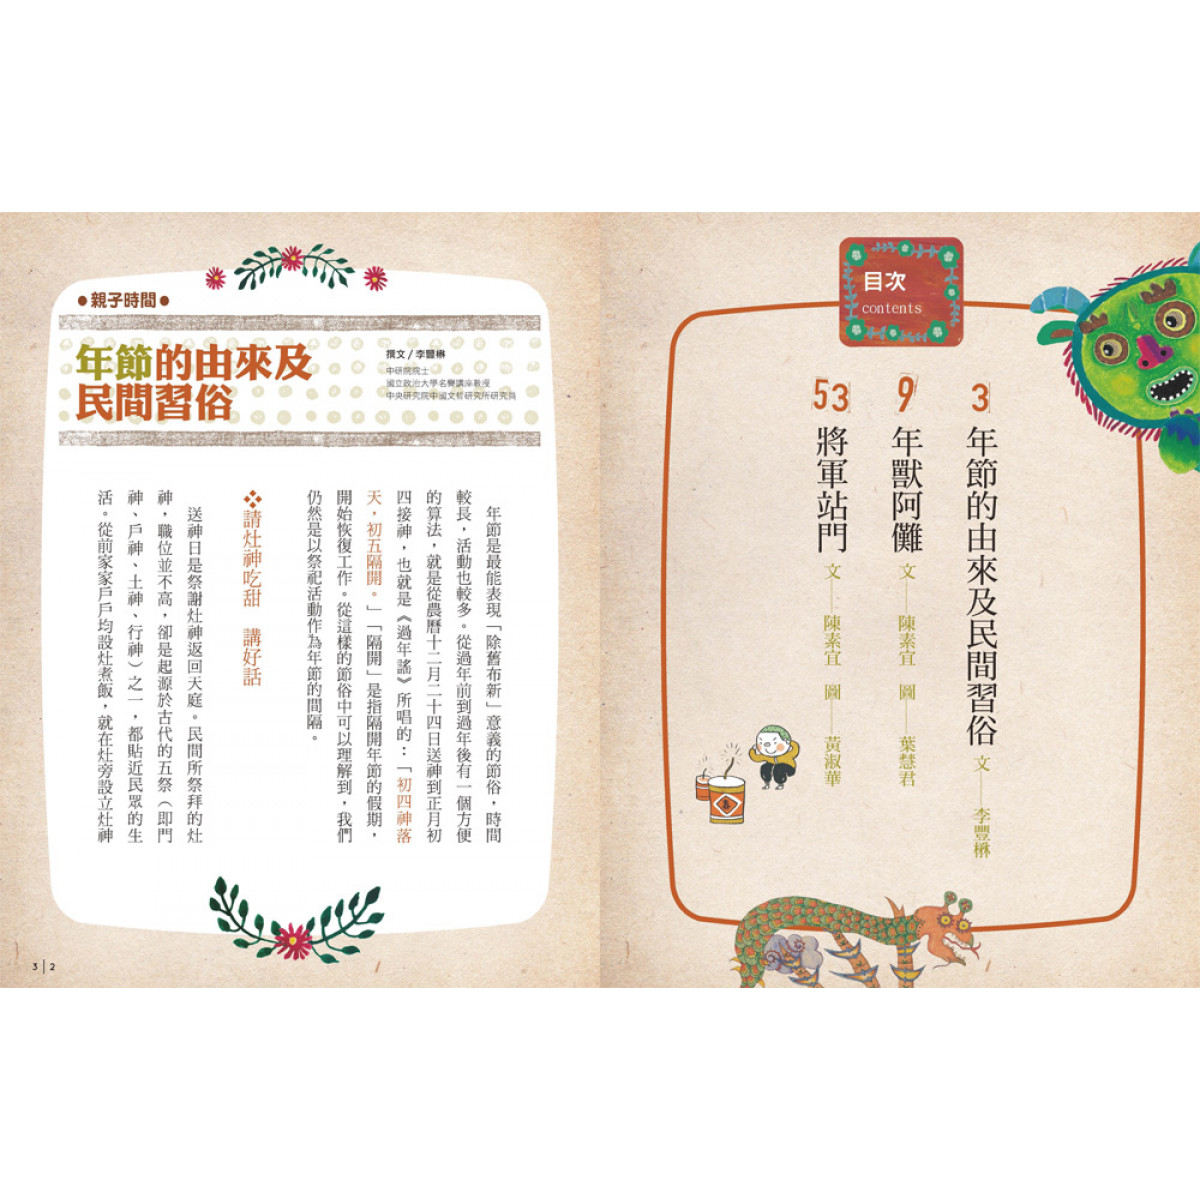 目次
contents
3
年節的由來及民間習俗 文——李豐楙
9
年獸阿儺 文——陳素宜 圖——葉慧君
53
將軍站門 文——陳素宜 圖——黃淑華
親子時間
年節的由來及
民間習俗
撰文/李豐楙
中研院院士
國立政治大學名譽講座教授
中央研究院中國文哲研究所研究員
年節是最能表現「除舊布新」意義的節俗，時間
較長，活動也較多。從過年前到過年後有一個方便
的算法，就是從農曆十二月二十四日送神到正月初
四接神，也就是《過年謠》所唱的：「初四神落
天，初五隔開。」「隔開」是指隔開年節的假期，
開始恢復工作。從這樣的節俗中可以理解到，我們
仍然是以祭祀活動作為年節的間隔。
請灶神吃甜 講好話
送神日是祭謝灶神返回天庭。民間所祭拜的灶
神，職位並不高，卻是起源於古代的五祭（即門
神、戶神、土神、行神）之一，都貼近民眾的生
活。從前家家戶戶均設灶煮飯，就在灶旁設立灶神
3|2